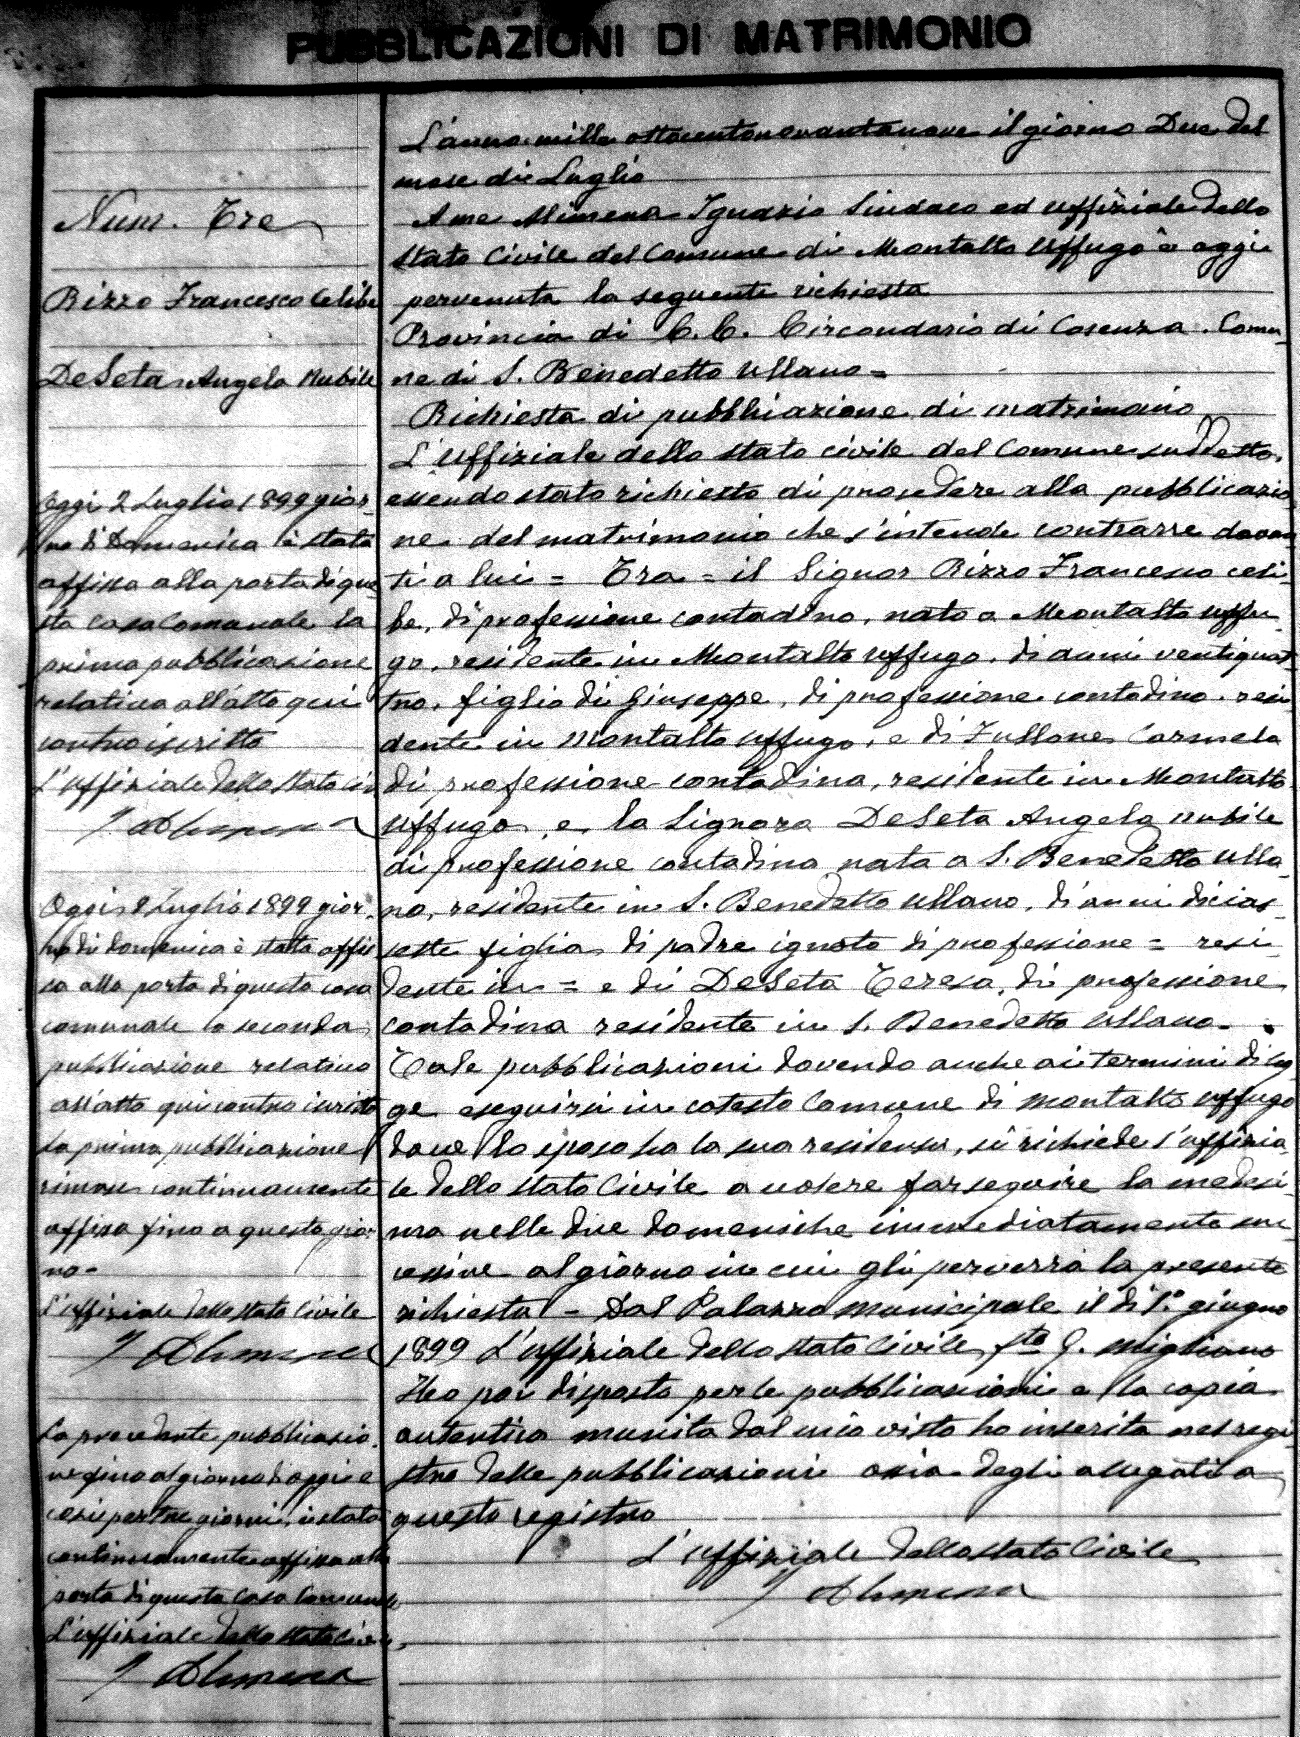 PUBBLICAZIONI DI MATRIMONIO
Num. Tre
Rizzo Francesco Celibe
DeSeta Angela Nubile
Oggi 2 Luglio 1899 gior-
no di Domenica è stata
affissa alla porta di que
sta casa Comunale la
prima pubblicazione
relativa all'atto qui
controiscritto
L'uffiziale dello stato civ
Oggi 9 Luglio 1899 gior-
no di domenica è stata affis
sa alla porta di questa casa
comunale la seconda
pubblicazione relativa
all'atto qui contro iscritto
La prima pubblicazione
rimase continuamente
affissa fino a questo gior
no-
L'uffiziale dello stato Civile
La precedente pubblicazio-
ne fino al giorno d'oggi e
così per tre giorni, è stata
continuamente affissa alla
porta di questa Casa Comunale
L'uffiziale dello stato Civile
L'anno mille ottocentonovantanove il giorno Due del
mese di Luglio
A me Alimena Ignazio Sindaco ed uffiziale dello
stato Civile del Comune di Montalto Uffugo è oggi
pervenuta la seguente richiesta
Provincia di C.C. Circondario di Cosenza. Comu-
ne di S. Benedetto Ullano =
Richiesta di pubblicazione di matrimonio
L'uffiziale dello stato civile del Comune suddetto,
essendo stato richiesto di procedere alla pubblicazio
ne del matrimonio che s'intende contrarre davan
ti a lui = Tra = il Signor Rizzo Francesco celi-
be, di professione contadino, nato a Montalto Uffu-
go, residente in Montalto Uffugo, di anni ventiquat-
tro, figlio di Giuseppe, di professione contadino, resi
dente in Montalto Uffugo, e di Carmela
di professione contadina, residente in Montalto
Uffugo, e la Signora DeSeta Angela nubile
di professione contadina nata a S. Benedetto Ulla-
no, residente in S. Benedetto Ullano, di anni dicias-
sette figlia di padre ignoto di professione = resi-
dente in = e di DeSeta Teresa, di professione
contadina residente in S. Benedetto Ullano-
Tale pubblicazioni dovendo anche ai termini di leg
ge eseguirsi in cotesto Comune di Montalto Uffugo
dove lo sposo ha la sua residenza, si richiede l'uffizia-
le dello stato Civile a volere far seguire la medesi-
ma nelle due domeniche immediatamente suc
cessive al giorno in cui gli perverrà la presente
richiesta - Dal Palazzo Municipale il dì 1° giugno
1899 L'uffiziale dello stato Civile fto G. Migliano
Ho poi disposto per le pubblicazioni e la copia
autentica munita dal mio visto ho inserita nel regi
stro delle pubblicazioni ossia degli allegati a
questo registro
L'uffiziale dello stato Civile